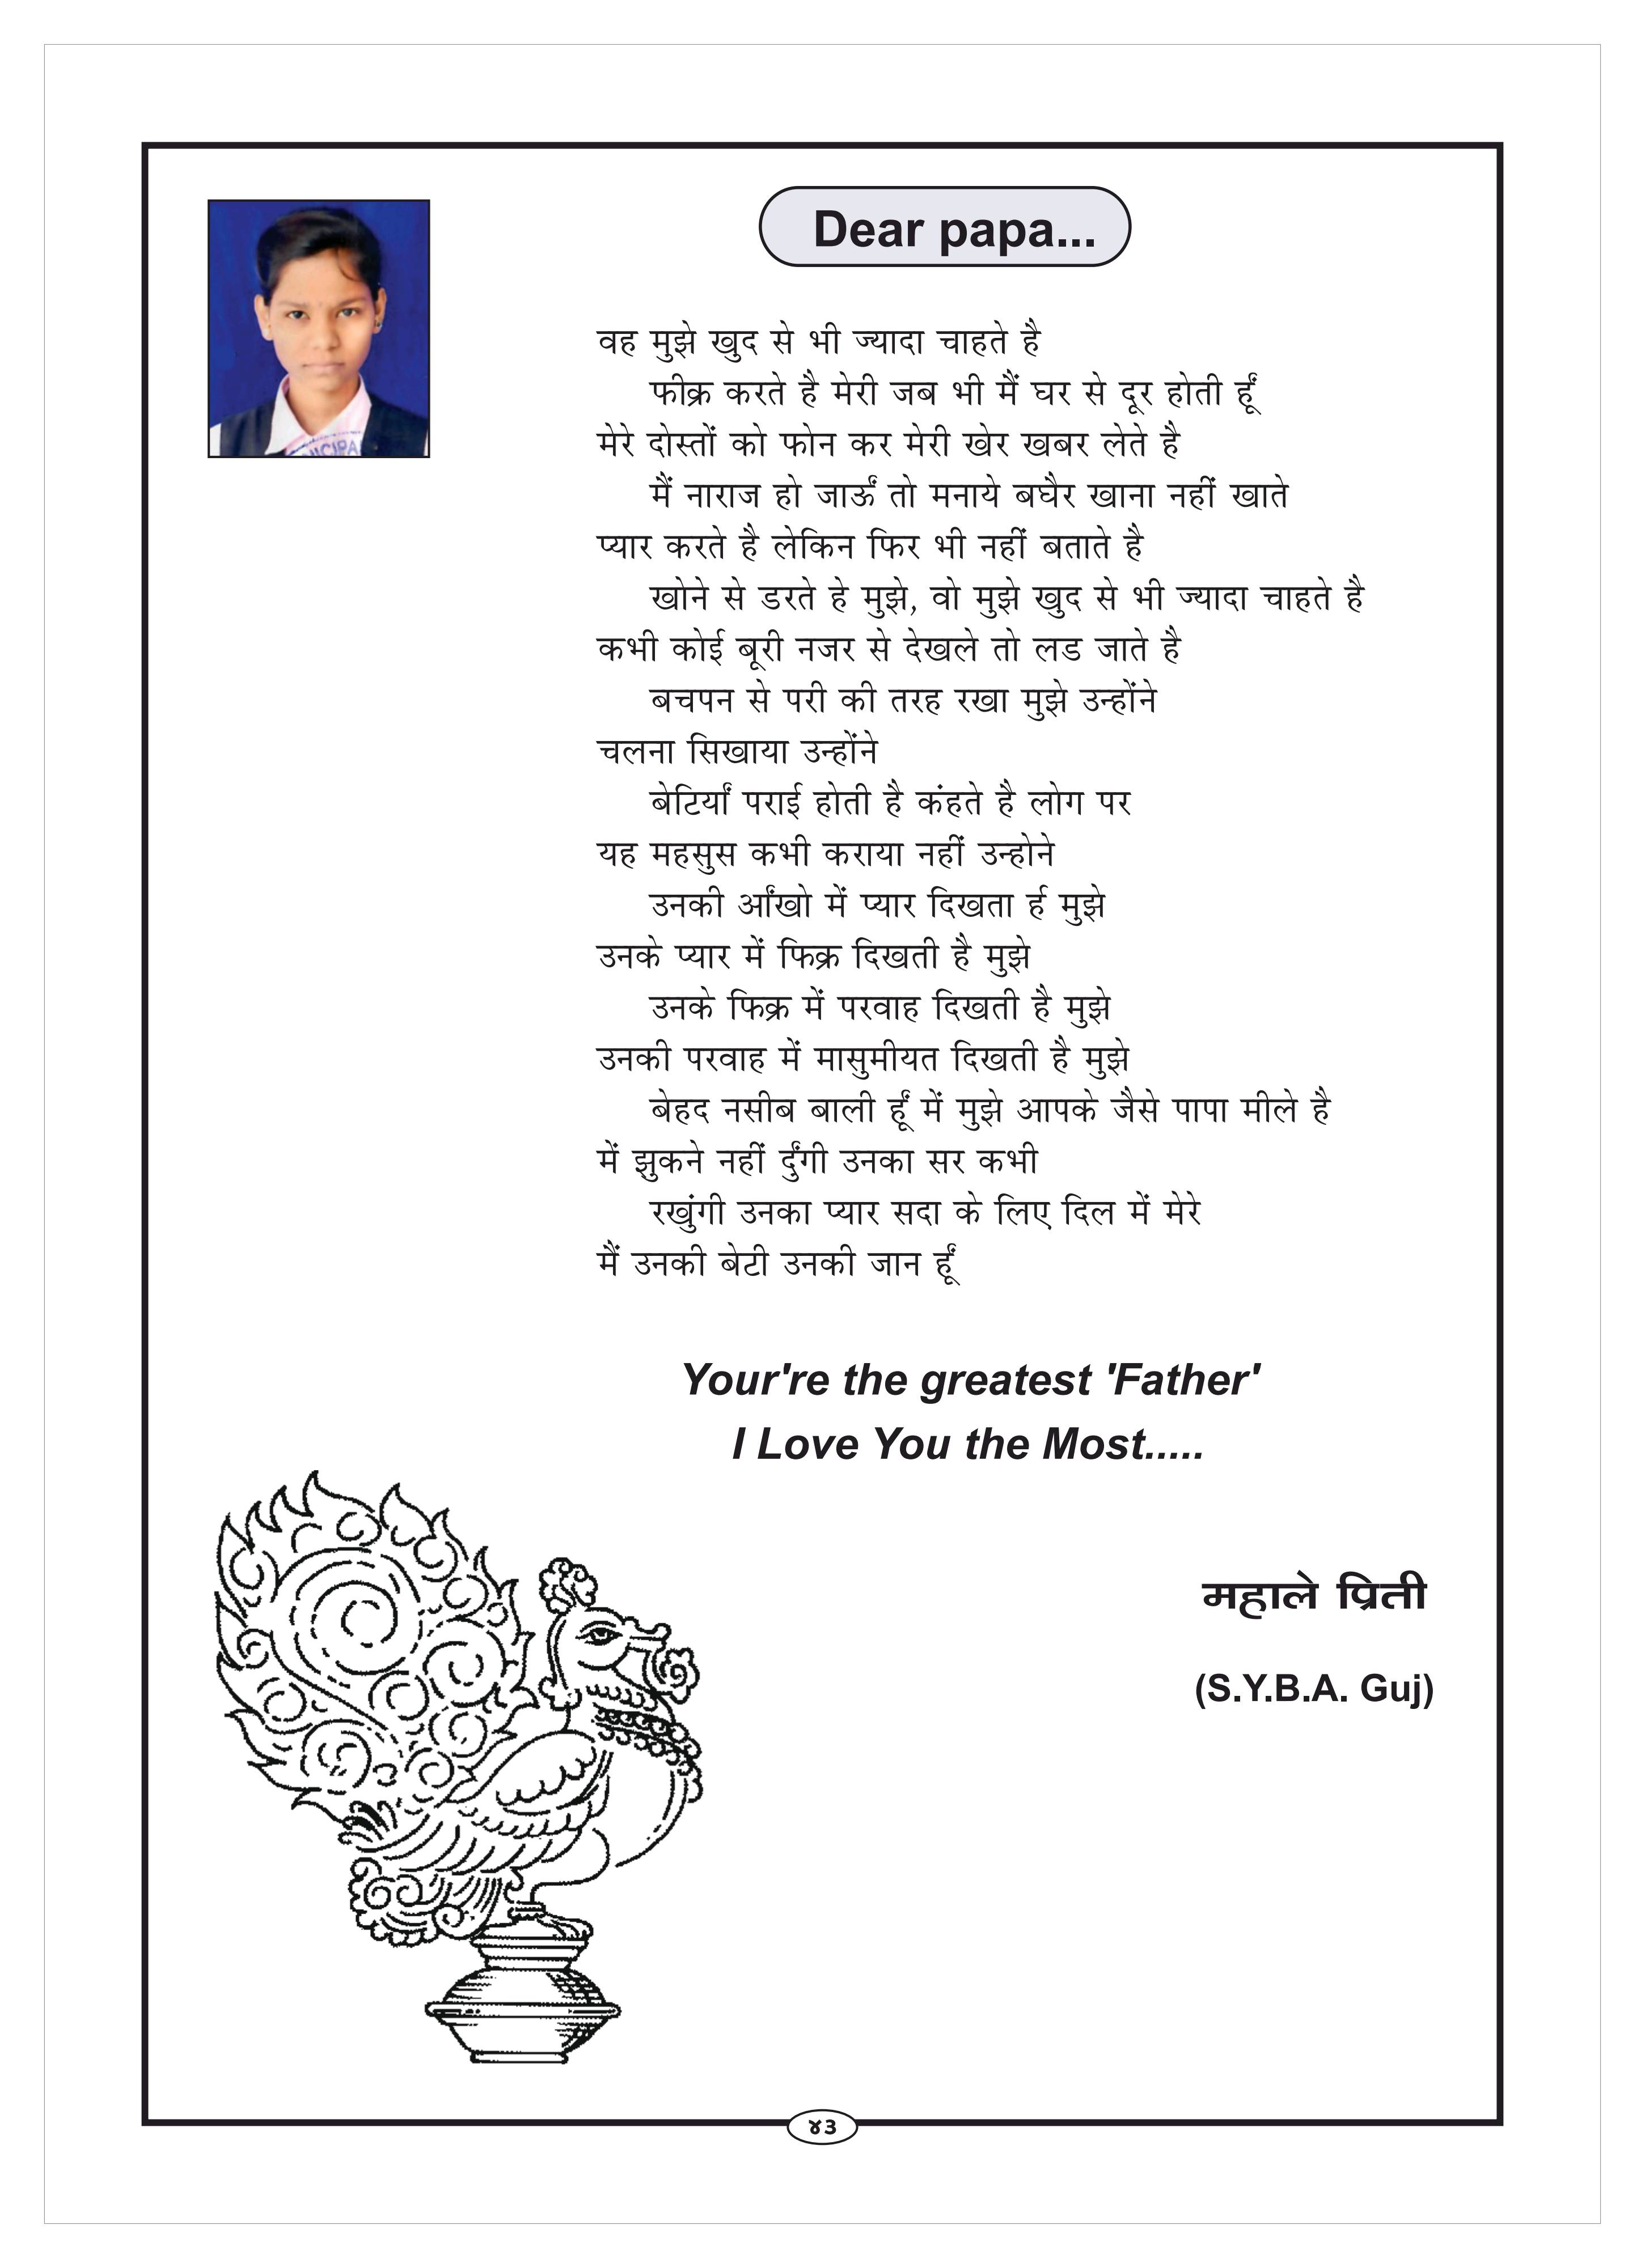 Dear papa...
वह मुझे खुद से भी ज्यादा चाहते है
फीक्र करते है मेरी जब भी मैं घर से दूर होती हूँ
मेरे दोस्तों को फोन कर मेरी खेर खबर लेते है
मैं नाराज हो जाऊँ तो मनाये बघैर खाना नहीं खाते
प्यार करते है लेकिन फिर भी नहीं बताते है
खोने से डरते हे मुझे, वो मुझे खुद से भी ज्यादा चाहते है
कभी कोई बूरी नजर से देखले तो लड जाते है
बचपन से परी की तरह रखा मुझे उन्होंने
चलना सिखाया उन्होंने
बेटियाँ पराई होती है कंहते है लोग पर
यह महसुस कभी कराया नहीं उन्होने
उनकी आँखो में प्यार दिखता र्ह मुझे
उनके प्यार में फिक्र दिखती है मुझे
उनके फिक्र में परवाह दिखती है मुझे
उनकी परवाह में मासुमीयत दिखती है मुझे
बेहद नसीब बाली हूँ में मुझे आपके जैसे पापा मीले है
में झुकने नहीं दुँगी उनका सर कभी
रखुंगी उनका प्यार सदा के लिए दिल में मेरे
मैं उनकी बेटी उनकी जान हूँ
Your're the greatest 'Father'
I Love You the Most.....
महाले प्रिती
(S.Y.B.A. Guj)
४३